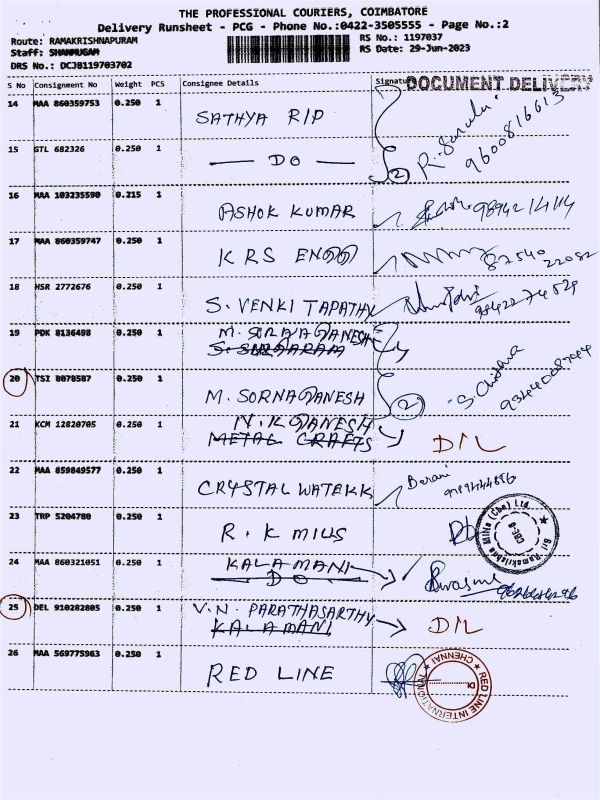 THE PROFESSIONAL COURIERS, COIMBATORE
Delivery Runsheet - PCG - Phone No.:0422-3505555 - Page No.:2
Route: RAMAKRISHNAPURAM RS No.: 1197037
Staff: SHANMUGAM RS Date: 29-Jun-2023
DRS No.: DCJB119703702
S No Consignment No Weight PCS Consignee Details Signature
DOCUMENT DELIVERY
14 MAA 860359753 0.250 1 SATHYA RIP
15 GTL 682326 0.250 1 DO 2 9600816613
16 MAA 103235590 0.215 1 ASHOK KUMAR
17 MAA 860359747 0.250 1 KRS ENGG 87540 22082
18 HSR 2772676 0.250 1 S. VENKI TAPATHY
19 PDK 8136498 0.250 1 M. SORNAGANESH
20 TSI 8078587 0.250 1 M. SORNAGANESH 2 S. Chithra
21 KCM 12820705 0.250 1 N.K GANESH
METAL CRAFTS D/L
22 MAA 859849577 0.250 1 CRYSTAL WATERR Barani
23 TRP 5204780 0.250 1 R. K MILLS
Sri Ramakrishna Mills (Cbe) Ltd.
24 MAA 860321051 0.250 1 KALAMANI
DO
25 DEL 910282805 0.250 1 V.N. PARATHASARTHY
KALAMANI D/L
26 MAA 569775963 0.250 1 RED LINE
RED LINE INTERNATIONAL CHENNAI